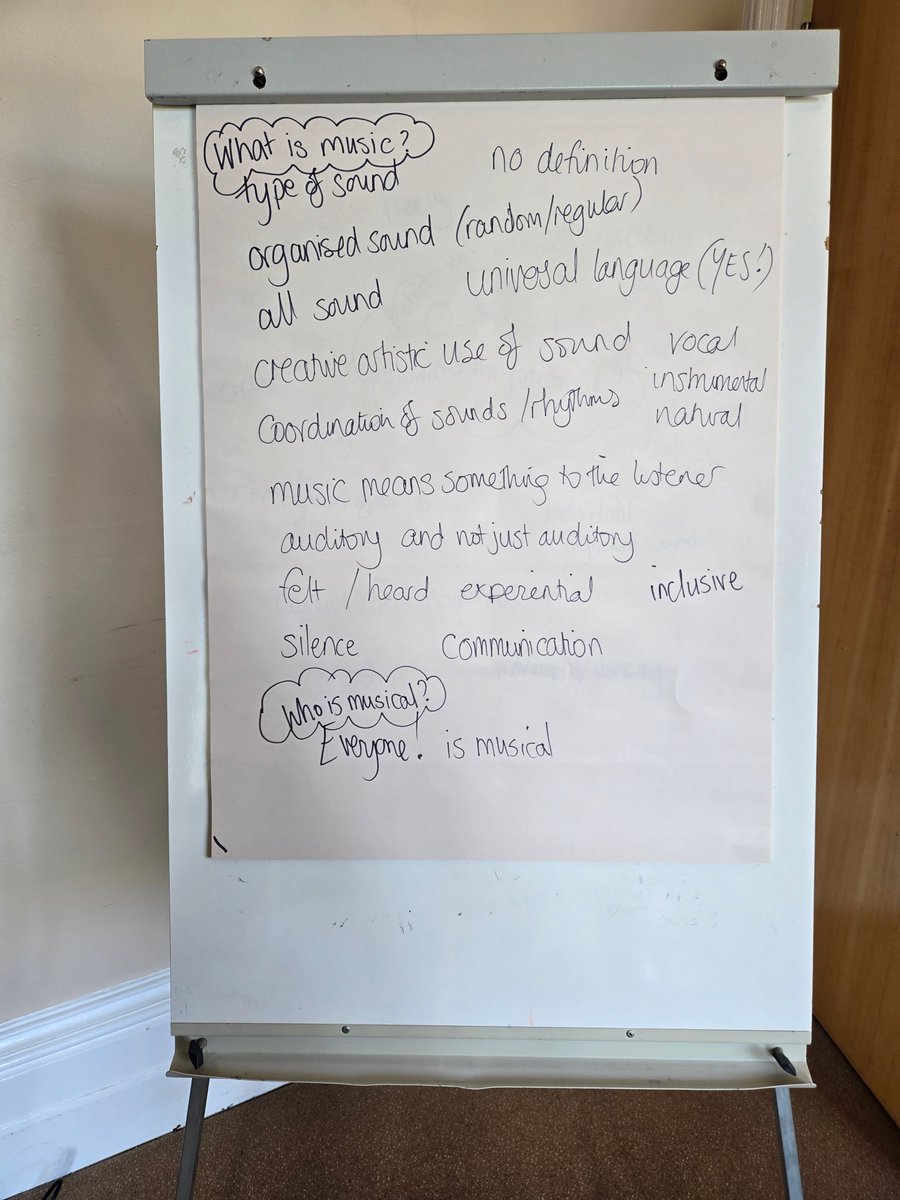 What is music?
type of sound
no definition
organised sound (random/regular)
all sound
universal language (YES!)
creative artistic use of sound
vocal
instrumental
natural
Coordination of sounds / rhythms
music means something to the listener
auditory and not just auditory
felt / heard experiential inclusive
silence communication
Who is musical?
Everyone! is musical